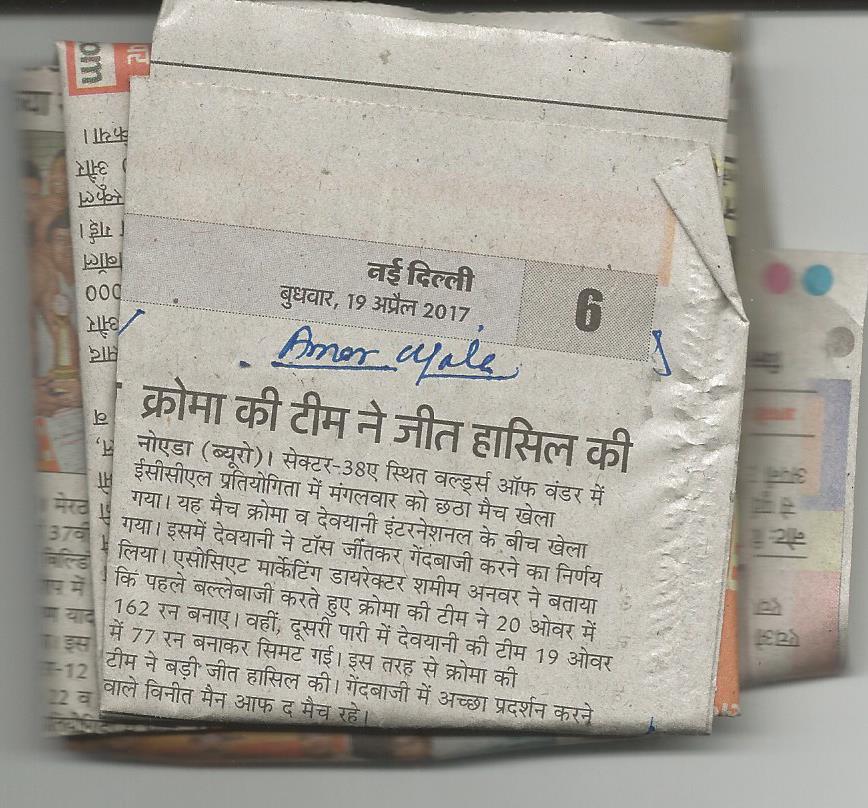 नई दिल्ली
बुधवार, 19 अप्रैल 2017
6
Amar Ujala
क्रोमा की टीम ने जीत हासिल की
नोएडा (ब्यूरो)। सेक्टर-38ए स्थित वर्ल्ड्स ऑफ वंडर में
ईसीसीएल प्रतियोगिता में मंगलवार को छठा मैच खेला
गया। यह मैच क्रोमा व देवयानी इंटरनेशनल के बीच खेला
गया। इसमें देवयानी ने टॉस जीतकर गेंदबाजी करने का निर्णय
लिया। एसोसिएट मार्केटिंग डायरेक्टर शमीम अनवर ने बताया
कि पहले बल्लेबाजी करते हुए क्रोमा की टीम ने 20 ओवर में
162 रन बनाए। वहीं, दूसरी पारी में देवयानी की टीम 19 ओवर
में 77 रन बनाकर सिमट गई। इस तरह से क्रोमा की
टीम ने बड़ी जीत हासिल की। गेंदबाजी में अच्छा प्रदर्शन करने
वाले विनीत मैन आफ द मैच रहे।
om
किया।
और
स्कूल
गई।
000
और
मेरठ
37वीं
में
याद
इस
-12
22 व